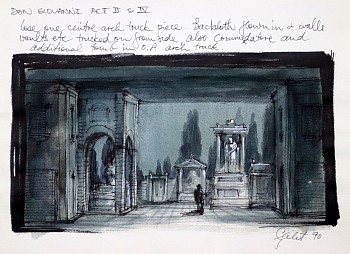 DON GIOVANNI ACT II S IV
Lose one centre arch truck piece Backcloth flown in & walls
vaults etc trucked on from side also Commendatore and
additional tomb in O.P. arch truck
90